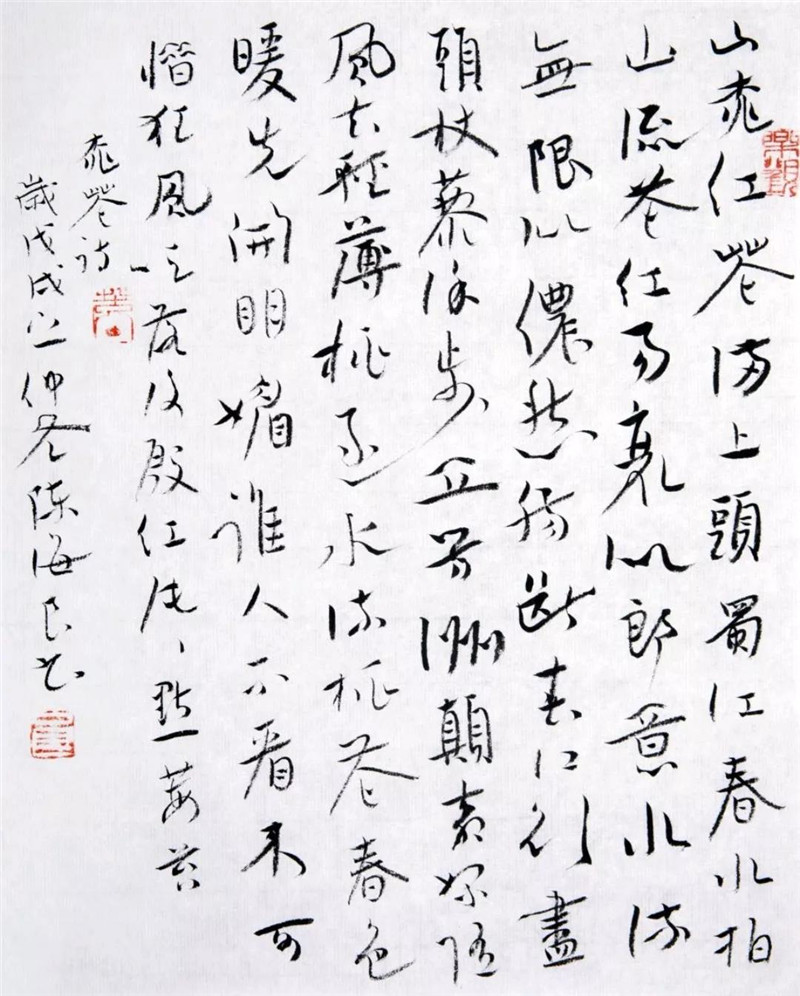 山桃红花満上頭蜀江春水拍
山流花红易衰似郎意水流
無限似儂愁腸斷春江欲盡
頭杖藜徐步立芳洲顛絮随
風去輕薄桃逐水流桃花春色
暖先開明媚誰人不看来可
惜狂風吹落後殷红片々點莓苔
桃花诗
歲戊戌之仲冬陳海良书